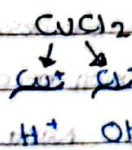 CuCl2
Cu+ Cl-
H+ OH